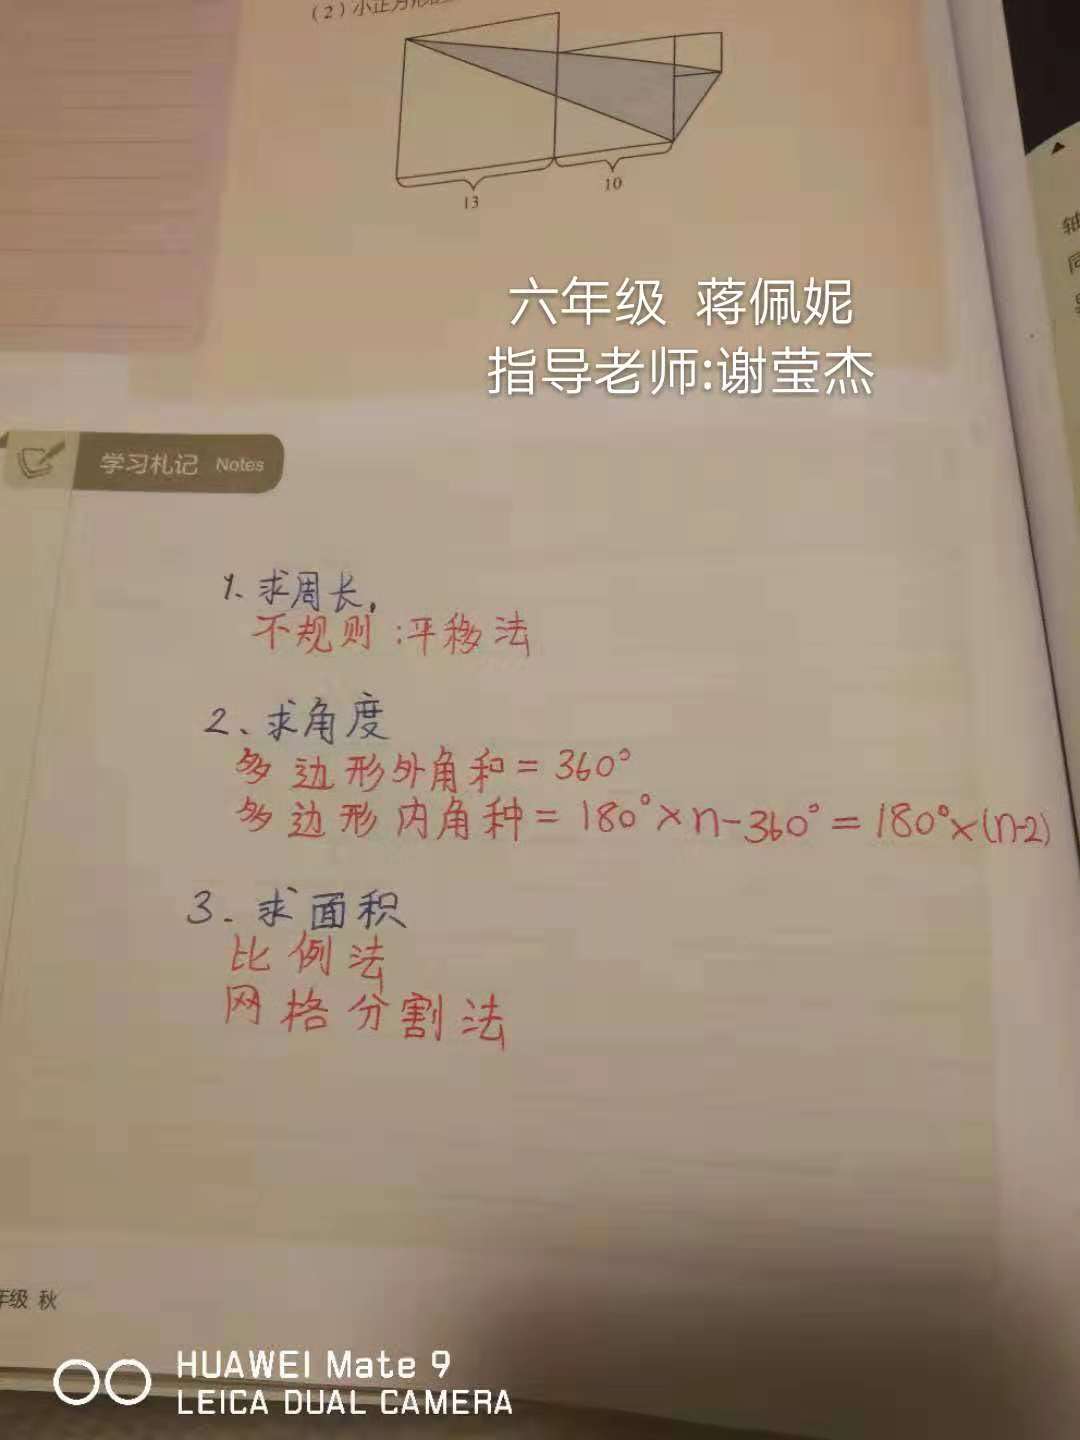 (2)小正方形
13
10
六年级 蒋佩妮
指导老师:谢莹杰
学习札记 Notes
1、求周长,
不规则:平移法
2、求角度
多边形外角和=360°
多边形内角种=180°×n-360°=180°×(n-2)
3.求面积
比例法
网格分割法
年级 秋
HUAWEI Mate 9
LEICA DUAL CAMERA